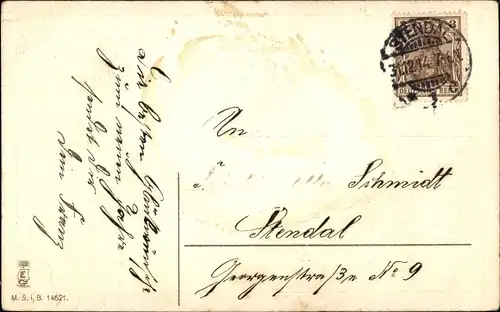 Die besten Glückwünsche
zum neuen Jahr
sendet Dir
dein Franz
An
Schmidt
Stendal
Georgenstraße No 9
STENDAL
31.12.14
3
DEUTSCHES REICH
M. S. i. B. 14621.